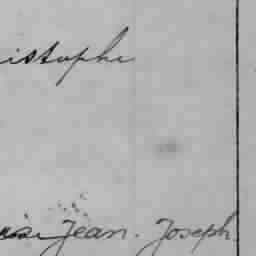 istophe
Jean. Joseph